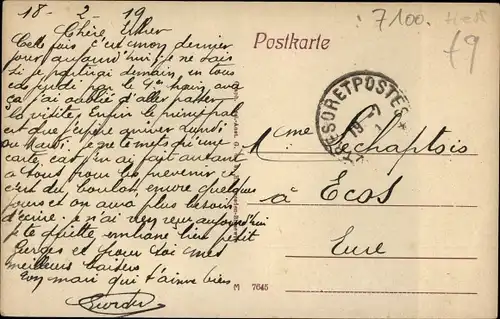 18-2-19
Chère
Cette fois c'est mon dernier
pour aujourd'hui je ne sais
si je partirai demain, en tous
cas
ça j'ai oublié d'aller passer
la visite. Enfin le principal
est que j'espère arriver Lundi
ou Mardi. Je ne mets qu'une
carte, car j'en ai fait autant
à tout pour les prévenir
c'est du boulot, encore quelques
jours et on aura plus besoin
d'écrire. je n'ai rien reçu aujourd'hui
je te quitte embrasse bien petit
et pour toi mes
meilleurs baisers
Ton mari qui t'aime bien
Postkarte
7100.
19
TRESORETPOSTES
Mme Lechaptois
à Ecos
Eure
M 7645